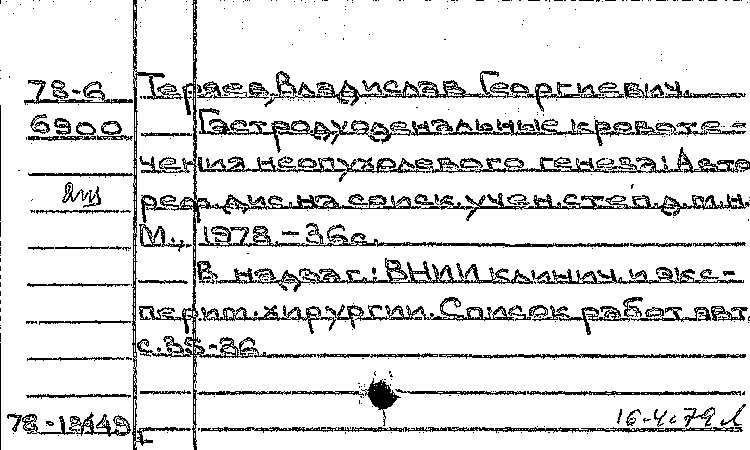 78-6 Теряев, Владислав Георгиевич.
6900 Гастродуоденальные кровоте-
чения неопухолевого генеза: Авто
реф. дис. на соиск. учен. степ. д.м.н.
М., 1978. - 36с.
В надзаг.: ВНИИ клинич. и экс-
перим. хирургии. Список работ авт.
с. 35-36.
16.4.79